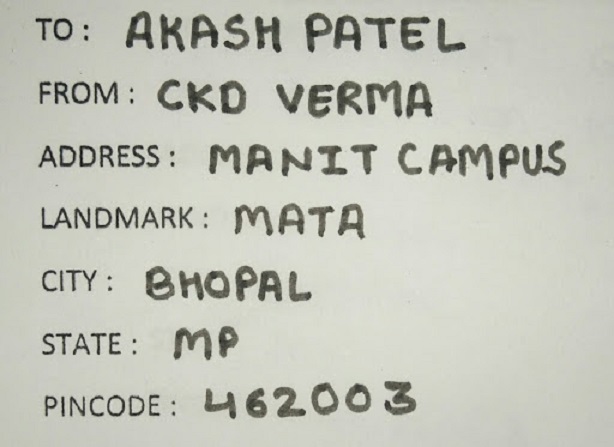 TO : AKASH PATEL
FROM : CKD VERMA
ADDRESS : MANIT CAMPUS
LANDMARK : MATA
CITY : BHOPAL
STATE : MP
PINCODE : 462003